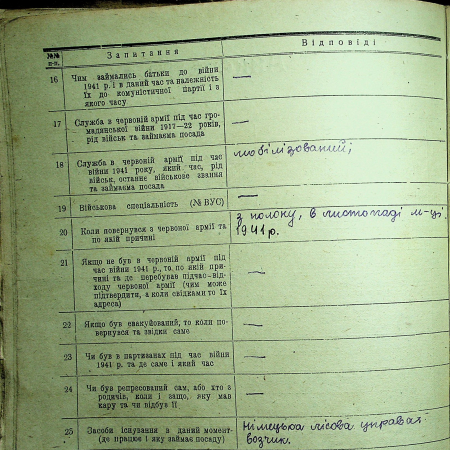 №№ п-п.
Запитання
Відповіді
16
Чим займались батьки до війни
1941 р. і в даний час та належність
їх до комуністичної партії і з
якого часу
—
17
Служба в червоній армії під час гро-
мадянської війни 1917—22 років,
рід військ та займаєма посада
—
18
Служба в червоній армії під час
війни 1941 року, який час, рід
військ, останнє військове звання
та займаєма посада
мобілізований,
19
Військова спеціяльність (№ ВУС)
—
20
Коли повернувся з червоної армії та
по якій причині
з полону, в листопаді м-ці
1941 р.
21
Якщо не був в червоній армії під
час війни 1941 р., то, по якій при-
чині та де перебував підчас від-
ходу червоної армії (чим може
підтвердити, а коли свідками то їх
адреса)
—
22
Якщо був евакуйований, то коли по-
вернувся та звідки саме
—
23
Чи був в партизанах під час війни
1941 р. та де саме і який час
—
24
Чи був репресований сам, або хто з
родичів, коли і защо, яку мав
кару та чи відбув її
—
25
Засоби існування в даний момент
(де працює і яку займає посаду)
Німецька лісова управа
возчик.